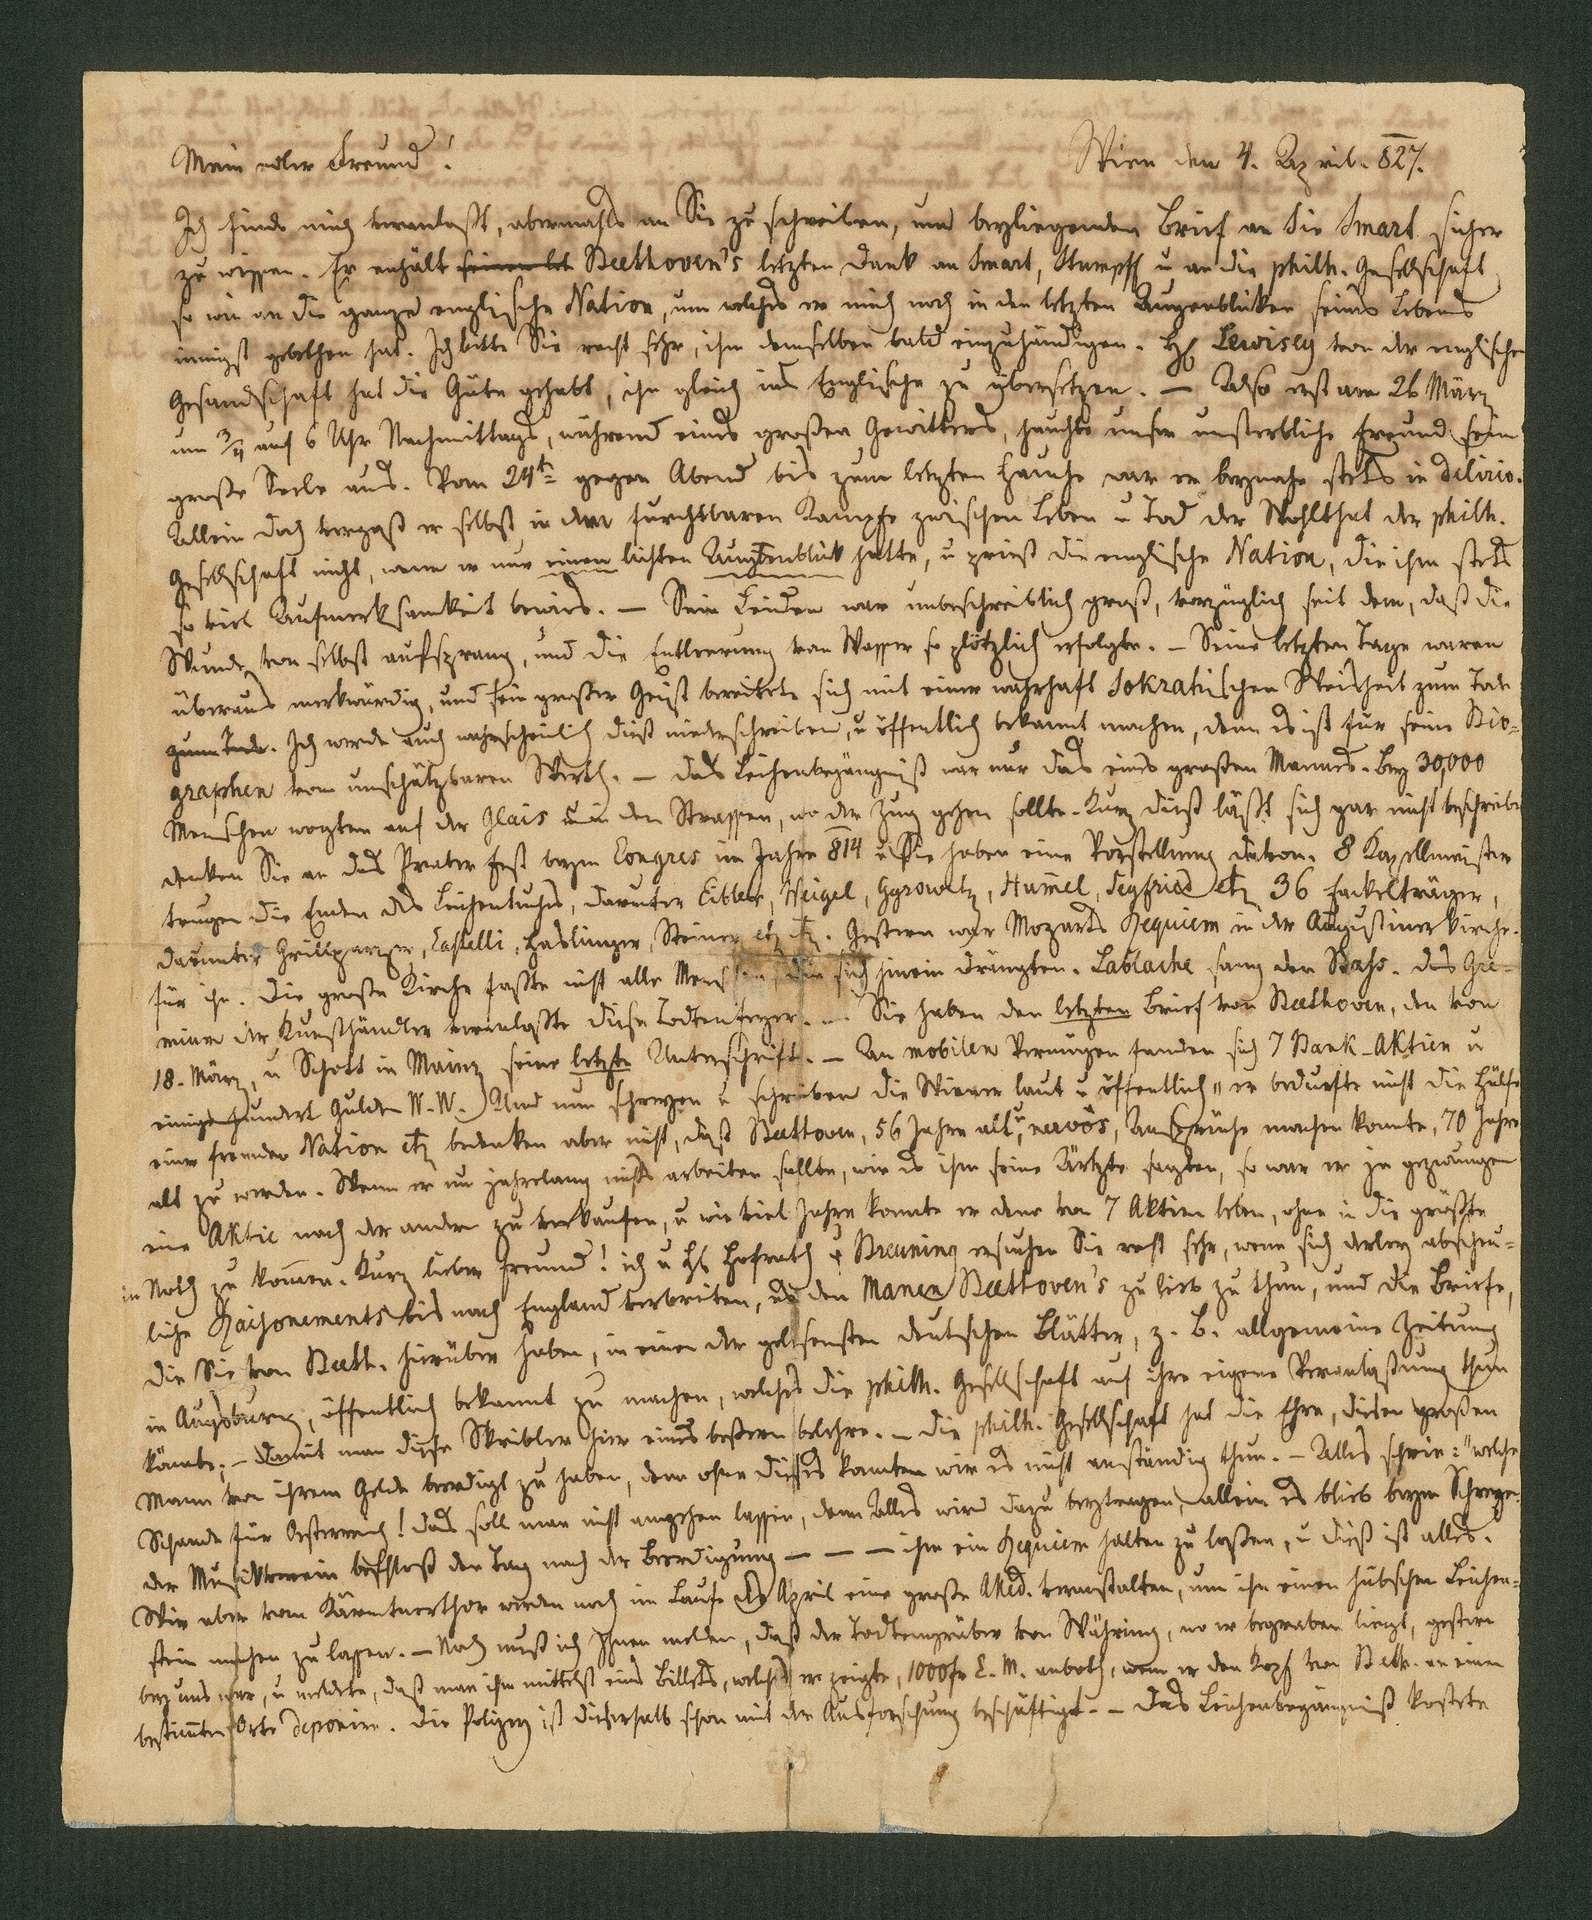 Mein edler Freund! Wien den 4. April. 827.
Ich finde mich veranlaßt, abermahls an Sie zu schreiben, um beyliegenden Brief an Sir Smart sicher
zu wissen. Er enhält seinen let Beethoven's letzten Dank an Smart, Stumpff u an die philh. Gesellschaft,
so wie an die ganze englische Nation, um welches er mich noch in den letzten Augenblicken seines Lebens
innigst gebethen hat. Ich bitte Sie recht sehr, ihm denselben bald einzuhändigen. H Lewisey von der englischen
Gesandschaft hat die Güte gehabt, ihn gleich ins Englische zu übersetzen. — Also erst am 26 März
um 3/4 auf 6 Uhr Nachmittags, während eines großen Gewitters, hauchte unser unsterbliche Freund sein
große Seele aus. Vom 24t gegen Abend bis zum letzten Hauche war er beynahe stets in delirio.
Allein doch vergaß er selbst in dem furchtbaren Kampfe zwischen Leben u Tod der Wohlthat der philh.
Gesellschaft nicht, wenn er nur einen lichten Augenblick hatte, u prieß die englische Nation, die ihm stets
so viel Aufmerksamkeit bewies. — Sein Leiden war unbeschreiblich groß, vorzüglich seit dem, daß die
Wunde von selbst aufsprang, und die Entleerung vom Wasser so plötzlich erfolgte. — Seine letzten Tage waren
überaus merkwürdig, und sein großer Geist bereitete sich mit einer wahrhaft Sokratischen Weisheit zum Tode
zum Tode. Ich werde auch wahrscheinlich dieß niederschreiben, u öffentlich bekannt machen, denn es ist für seine Bio-
graphen von unschätzbaren Werth. — Das Leichenbegängniß war nur das eines großen Mannes. Bey 30,000
Menschen wogten auf der Glais u in den Strassen, wo der Zug gehen sollte. Kurz dieß läßt sich gar nicht beschreiben
denken Sie an das Prater Fest beym Congres im Jahre 814 u Sie haben eine Vorstellung davon. 8 Kapellmeister
trugen die Enden des Leichentuches, darunter Eibler, Weigel, Gyrowetz, Hummel, Seyfried etz 36 Fackelträger,
darunter Grillparzer, Castelli, Haslinger, Steiner etz etz. Gestern war Mozarts Requiem in der Augustiner Kirche.
für ihn. Die große Kirche faßte nicht alle Menschen, die sich hinein drängten. Lablache sang den Bass. Das Gre-
mium der Kunsthändler veranlaßte diese Todtenfeyer. — Sie haben den letzten Brief von Beethoven, den von
18. März, u Schott in Mainz seine letzte Unterschrift. — An mobilen Vermögen fanden sich 7 Bank-Aktien u
einige hundert Gulden W. W. — Und nun schreyen u schreiben die Wiener laut u öffentlich „er bedurfte nicht die Hülfe
einer fremden Nation etz bedenken aber nicht, daß Beethoven, 56 Jahre alt u nervös, Ansprüche machen konnte, 70 Jahre
alt zu werden. Wenn er nun jahrelang nichts arbeiten sollte, wie es ihm seine Aerzte sagten, so war er ja gezwungen
eine Aktie nach der andern zu verkaufen, u wie viel Jahre konnte er denn von 7 Aktien leben, ohne in die größte
in Noth zu kommen. Kurz lieber Freund! ich u H Hofrath v Breuning ersuchen Sie recht sehr, wenn sich derley abscheu-
liche Raisonements bis nach England verbreiten, es den Manen Beethoven's zu lieb zu thun, und die Briefe,
die Sie von Beeth. hierüber haben, in einer der gelesensten deutschen Blätter, z. B. allgemeine Zeitung
in Augsburg, öffentlich bekannt zu machen, welches die philh. Gesellschaft auf ihre eigene Veranlaßung thun
könnte; — damit man diese Skribler hier eines beßern belehre. — Die philh. Gesellschaft hat die Ehre, diesen großen
Mann von ihrem Gelde beerdigt zu haben, denn ohne dieses konnten wir es nicht anständig thun. — Alles schrie: "welche
Schande für Oesterreich! Das soll man nicht angehen lassen, denn Alles wird dazu beytragen, allein es blieb beym Schreyen.
der Musikverein beschloß den Tag nach der Beerdigung — — — ihm ein Requiem halten zu laßen, u dieß ist alles.
Wir aber vom Kärntnerthor werden noch im Laufe des April eine große Akad. veranstalten, um ihm einen hübschen Leichen-
stein machen zu lassen. — Noch muß ich Ihnen melden, daß der Todtengräber von Währing, wo er begraben liegt, gestern
bey uns war, u meldete, daß man ihm mittelst eines Billets, welches er zeigte, 1000 f C. M. anboth, wenn er den Kopf von Beeth. an einen
bestimmten Orte deponire. Die Polizey ist dießhalb schon mit der Ausforschung beschäftigt. — Das Leichenbegängniß kostete